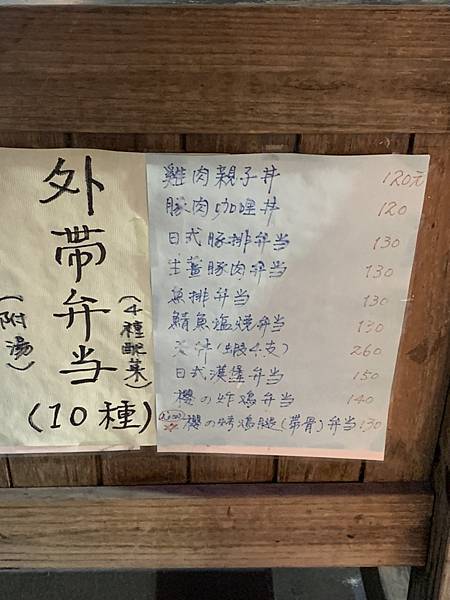 外帶弁当
(4種配菜)
(附湯)
(10種)
雞肉親子丼 120元
豚肉咖哩丼 120
日式豚排弁当 130
生薑豚肉弁当 130
魚排弁当 130
鯖魚塩焼弁当 130
天丼(蝦4支) 260
日式漢堡弁当 150
櫻の炸鸡弁当 140
櫻の烤鸡腿(帶骨)弁当 130